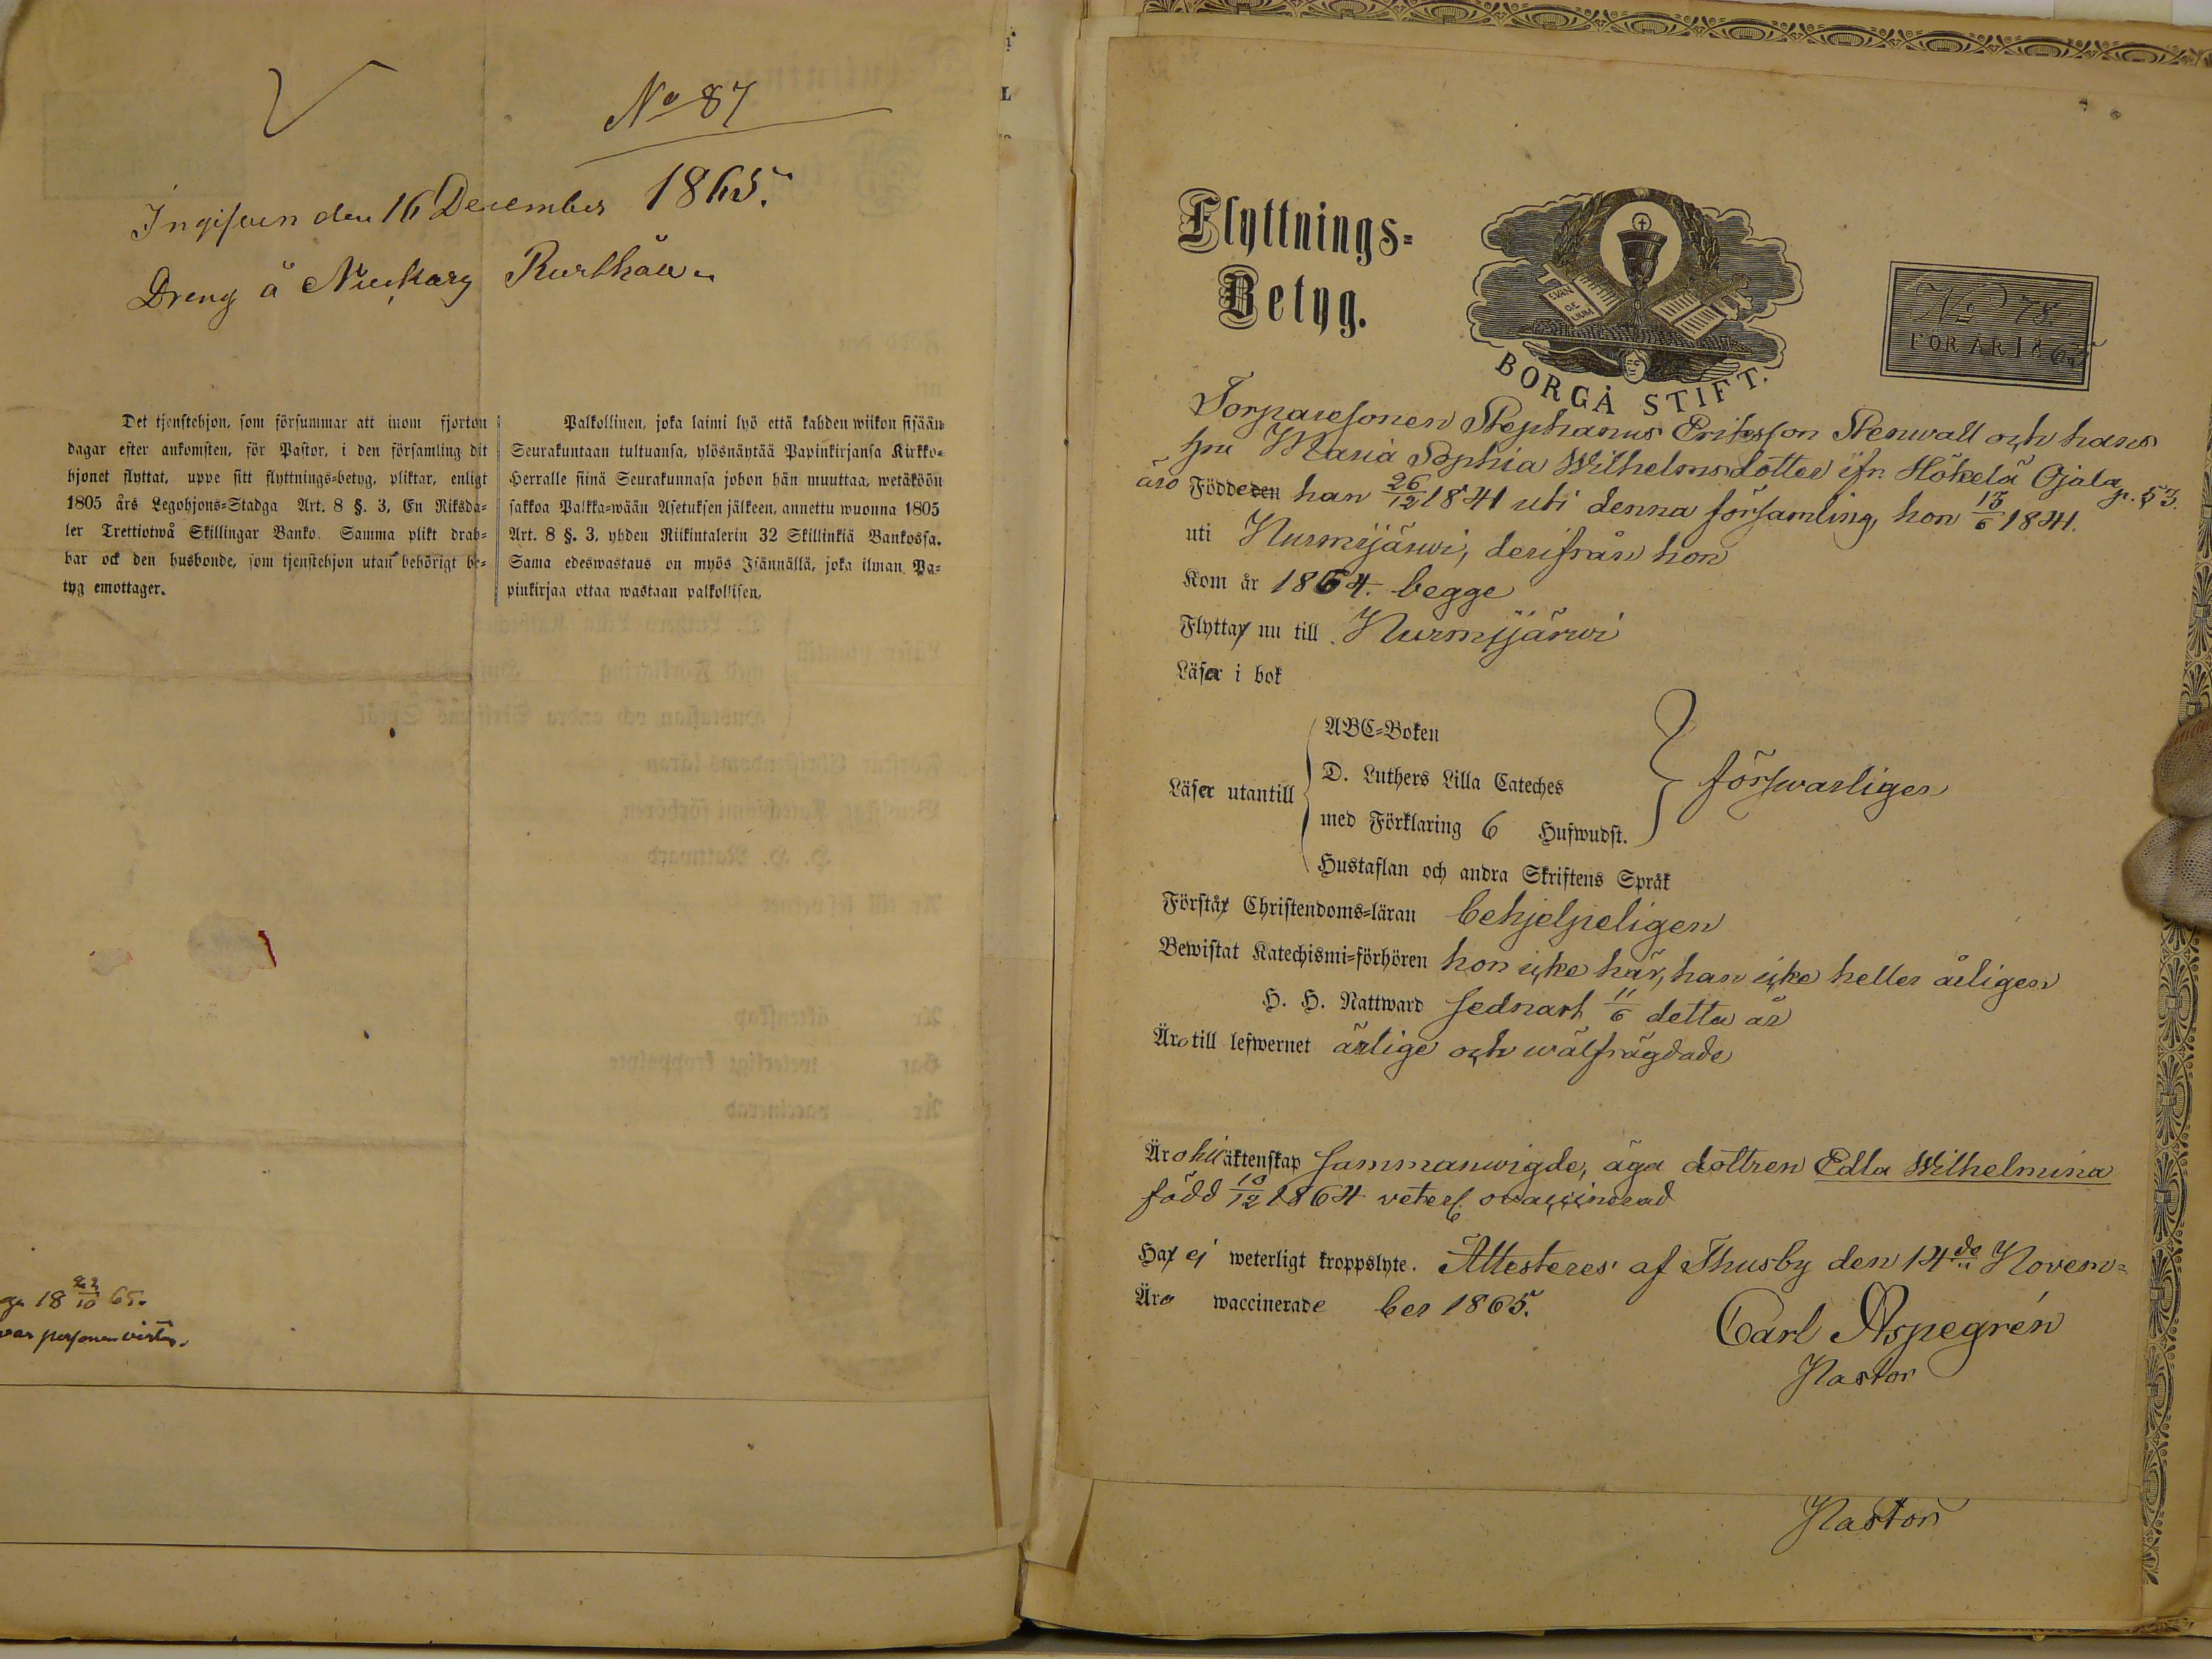 No 87
Ingifven den 16 December 1865.
Dreng å
Det tjenstehjon, som försummar att inom fjorton
dagar efter ankomsten, för Pastor, i den församling dit
hjonet flyttat, uppe sitt flyttnings-betyg, pliktar, enligt
1805 års Legohjons-Stadga Art. 8 §. 3, En Riksda-
ler Trettiotwå Skillingar Banko. Samma plikt drab-
bar ock den husbonde, som tjenstehjon utan behörigt be-
tyg emottager.
Palkollinen, joka laimi lyö että kahden wiikon sisään
Seurakuntaan tultuansa, ylösnäytää Papinkirjansa Kirkko-
Herralle siinä Seurakunnasa johon hän muuttaa, wetäköön
sakkoa Palkka-wään Asetuksen jälkeen, annettu wuonna 1805
Art. 8 §. 3, yhden Riikintalerin 32 Skillinkiä Bankossa.
Sama edeswastaus on myös Isännällä, joka ilman Pa-
pinkirjaa ottaa wastaan palkollisen.
18 65.
personen
Flyttnings-
Betyg.
EVAN
GE
LIUM
BORGÅ STIFT.
No 78.
FÖR ÅR 1865
Torparesonen Stephanus Eriksson Stenwall och hans
hu Maria Sophia Wilhelmsdotter ifr. Hökelä Ojala p. 53.
äro Födde den han 26/12 1841 uti denna församling, hon 13/6 1841.
uti Nurmijärwi, derifrån hon
Kom år 1864. begge
Flytta nu till Nurmijärwi
Läsa i bok
Läser utantill
ABC-Boken
D. Luthers Lilla Cateches
med Förklaring 6 Hufwudst.
Hustaflan och andra Skriftens Språk
försvarligen
Förstår Christendoms-läran behjelpeligen
Bewistat Katechismi-förhören hon icke här, han icke heller årligen
H. H. Nattward sednast 11/6 detta år
Äro till lefwernet ärlige och wälfrägdade
Äro hit äktenskap sammanwigde, äga dottren Edla Wilhelmina
född 10/12 1864 veterl. ovaccinerad
Ha ej weterligt kroppslyte. Attesteres af Thusby den 14de Novem-
Äro waccinerade ber 1865.
Carl Aspegrén
Pastor
Pastor